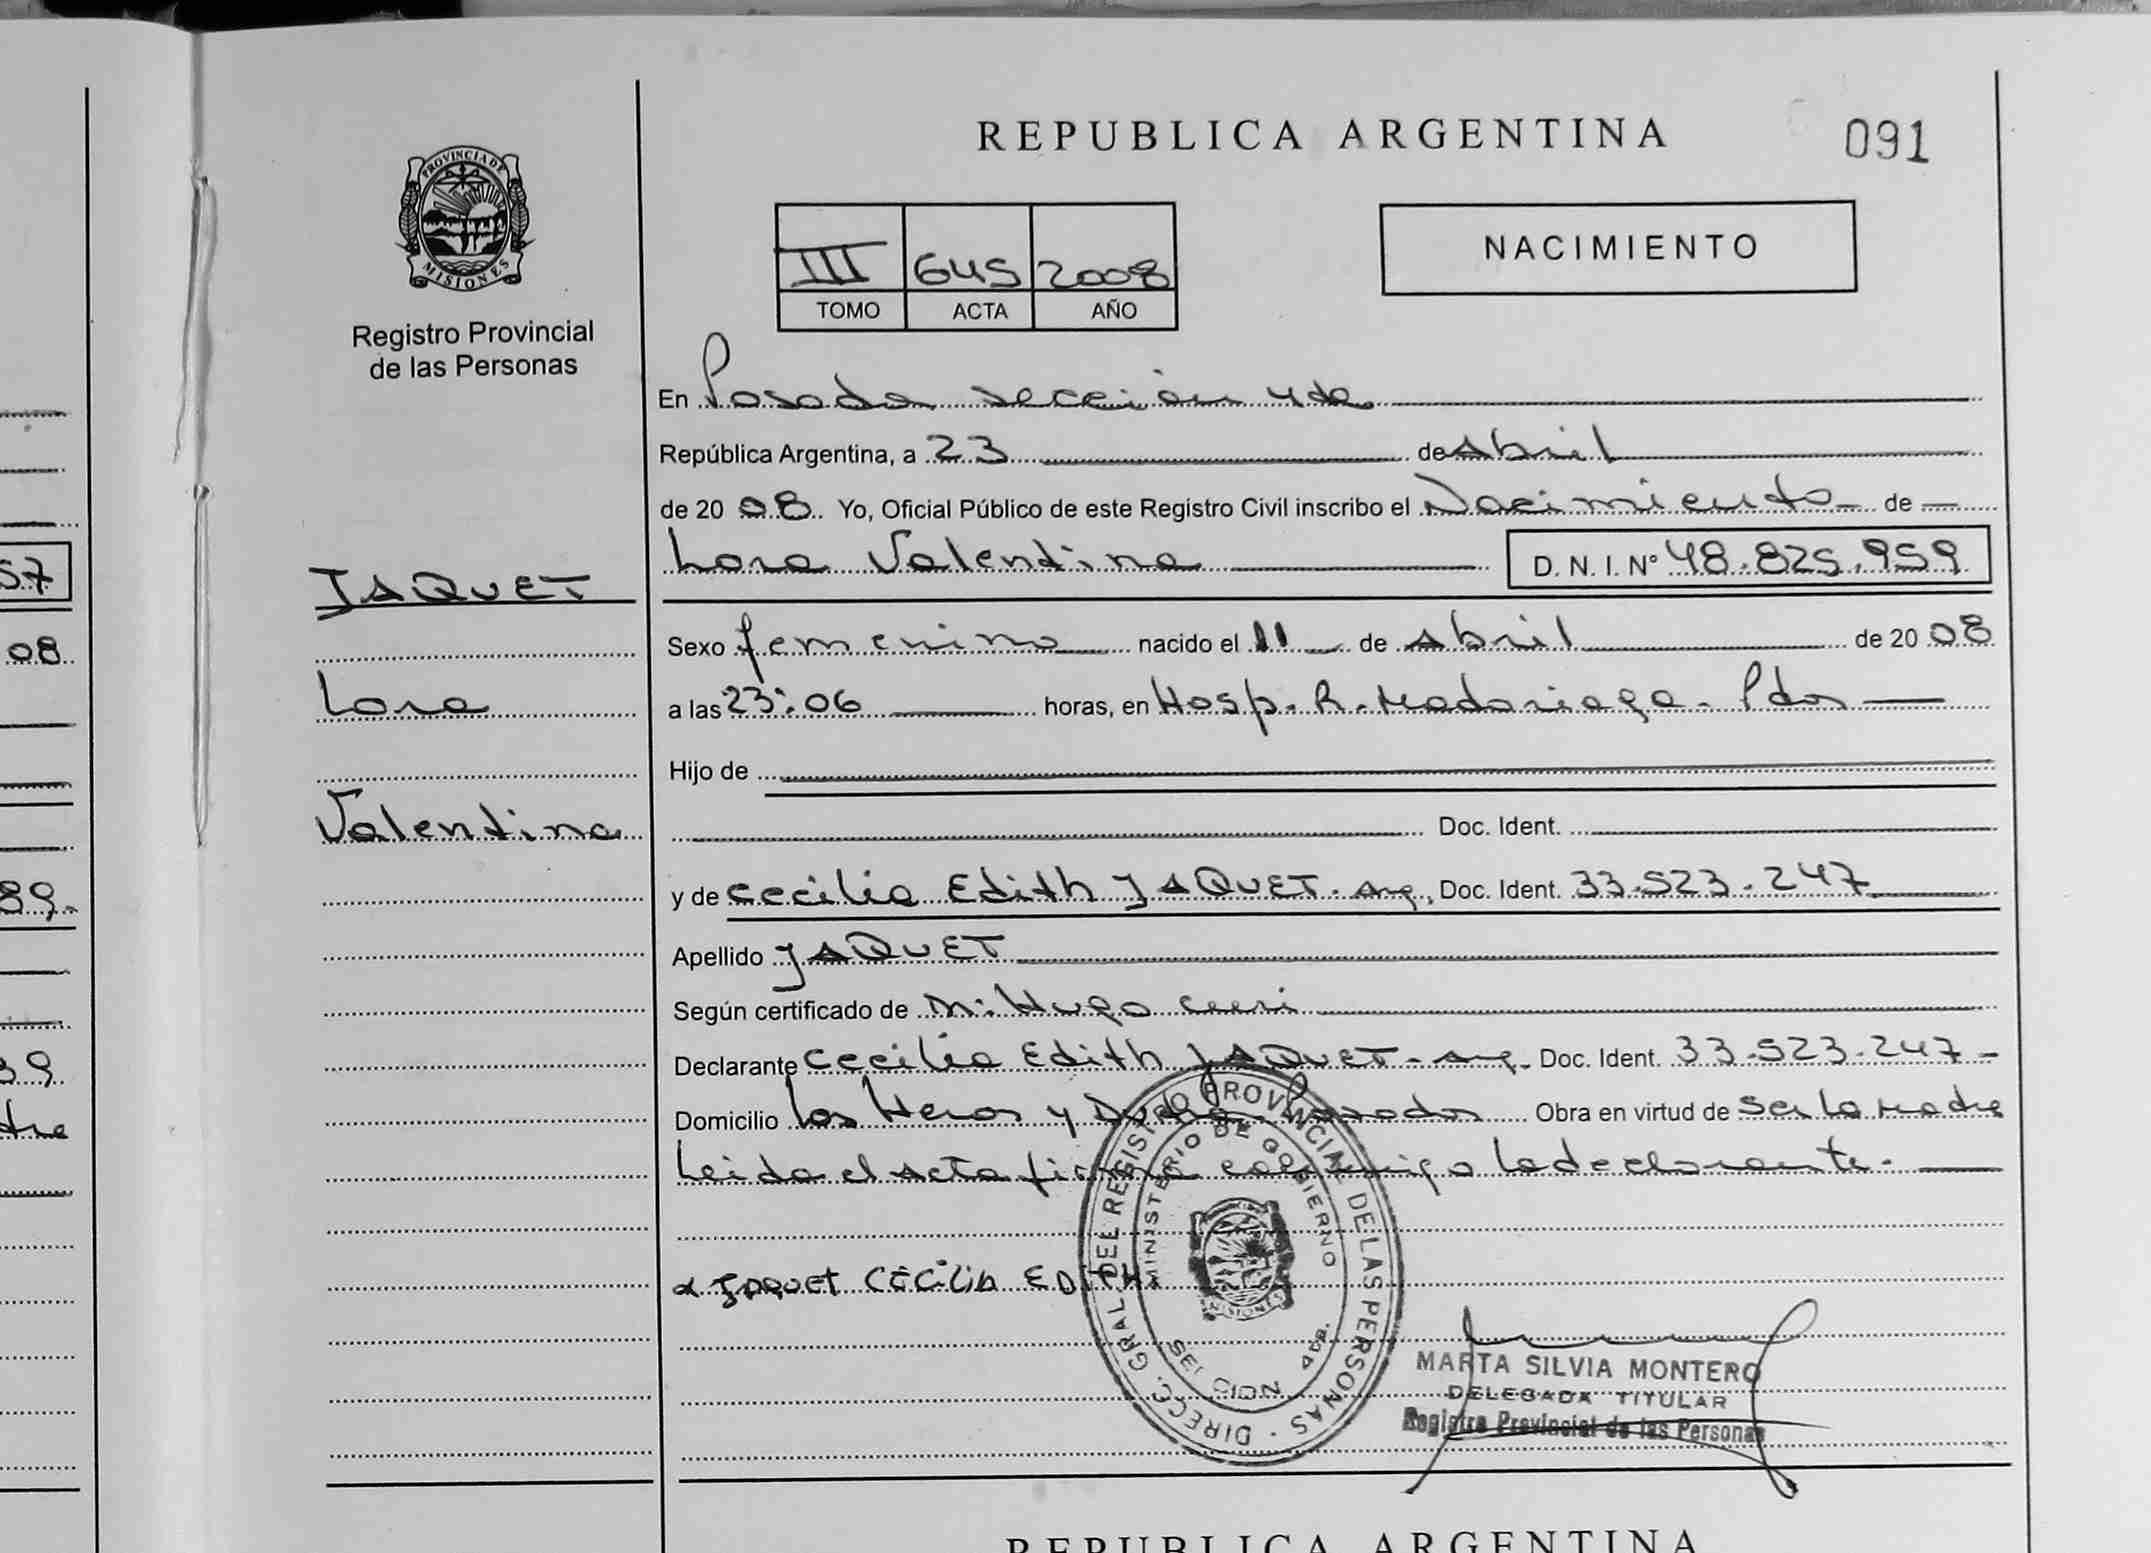 REPUBLICA ARGENTINA
091
PROVINCIA DE
MISIONES
Registro Provincial
de las Personas
III 645 2008
TOMO ACTA AÑO
NACIMIENTO
En Posadas sección 4ta
República Argentina, a 23 de Abril
de 2008 Yo, Oficial Público de este Registro Civil inscribo el Nacimiento de
Lara Valentina D. N. I. Nº 48.825.959
JAQUET
Lara
Valentina
Sexo femenino nacido el 11 de Abril de 2008
a las 23:06 horas, en Hosp. R. Madariaga. Pdas
Hijo de
Doc. Ident.
y de Cecilia Edith JAQUET. Arg. Doc. Ident. 33.523.247
Apellido JAQUET
Según certificado de M. Hugo
Declarante Cecilia Edith JAQUET - Arg. Doc. Ident. 33.523.247
Domicilio Las Heras y Posadas Obra en virtud de ser la madre
Leida el acta firma conmigo la declarante.
JAQUET CECILIA EDITH
DIRECC. GRAL. DEL REGISTRO PROVINCIAL DE LAS PERSONAS
MINISTERIO DE GOBIERNO
MISIONES
MARTA SILVIA MONTERO
DELEGADA TITULAR
Registro Provincial de las Personas
REPUBLICA ARGENTINA
57
08
89
39